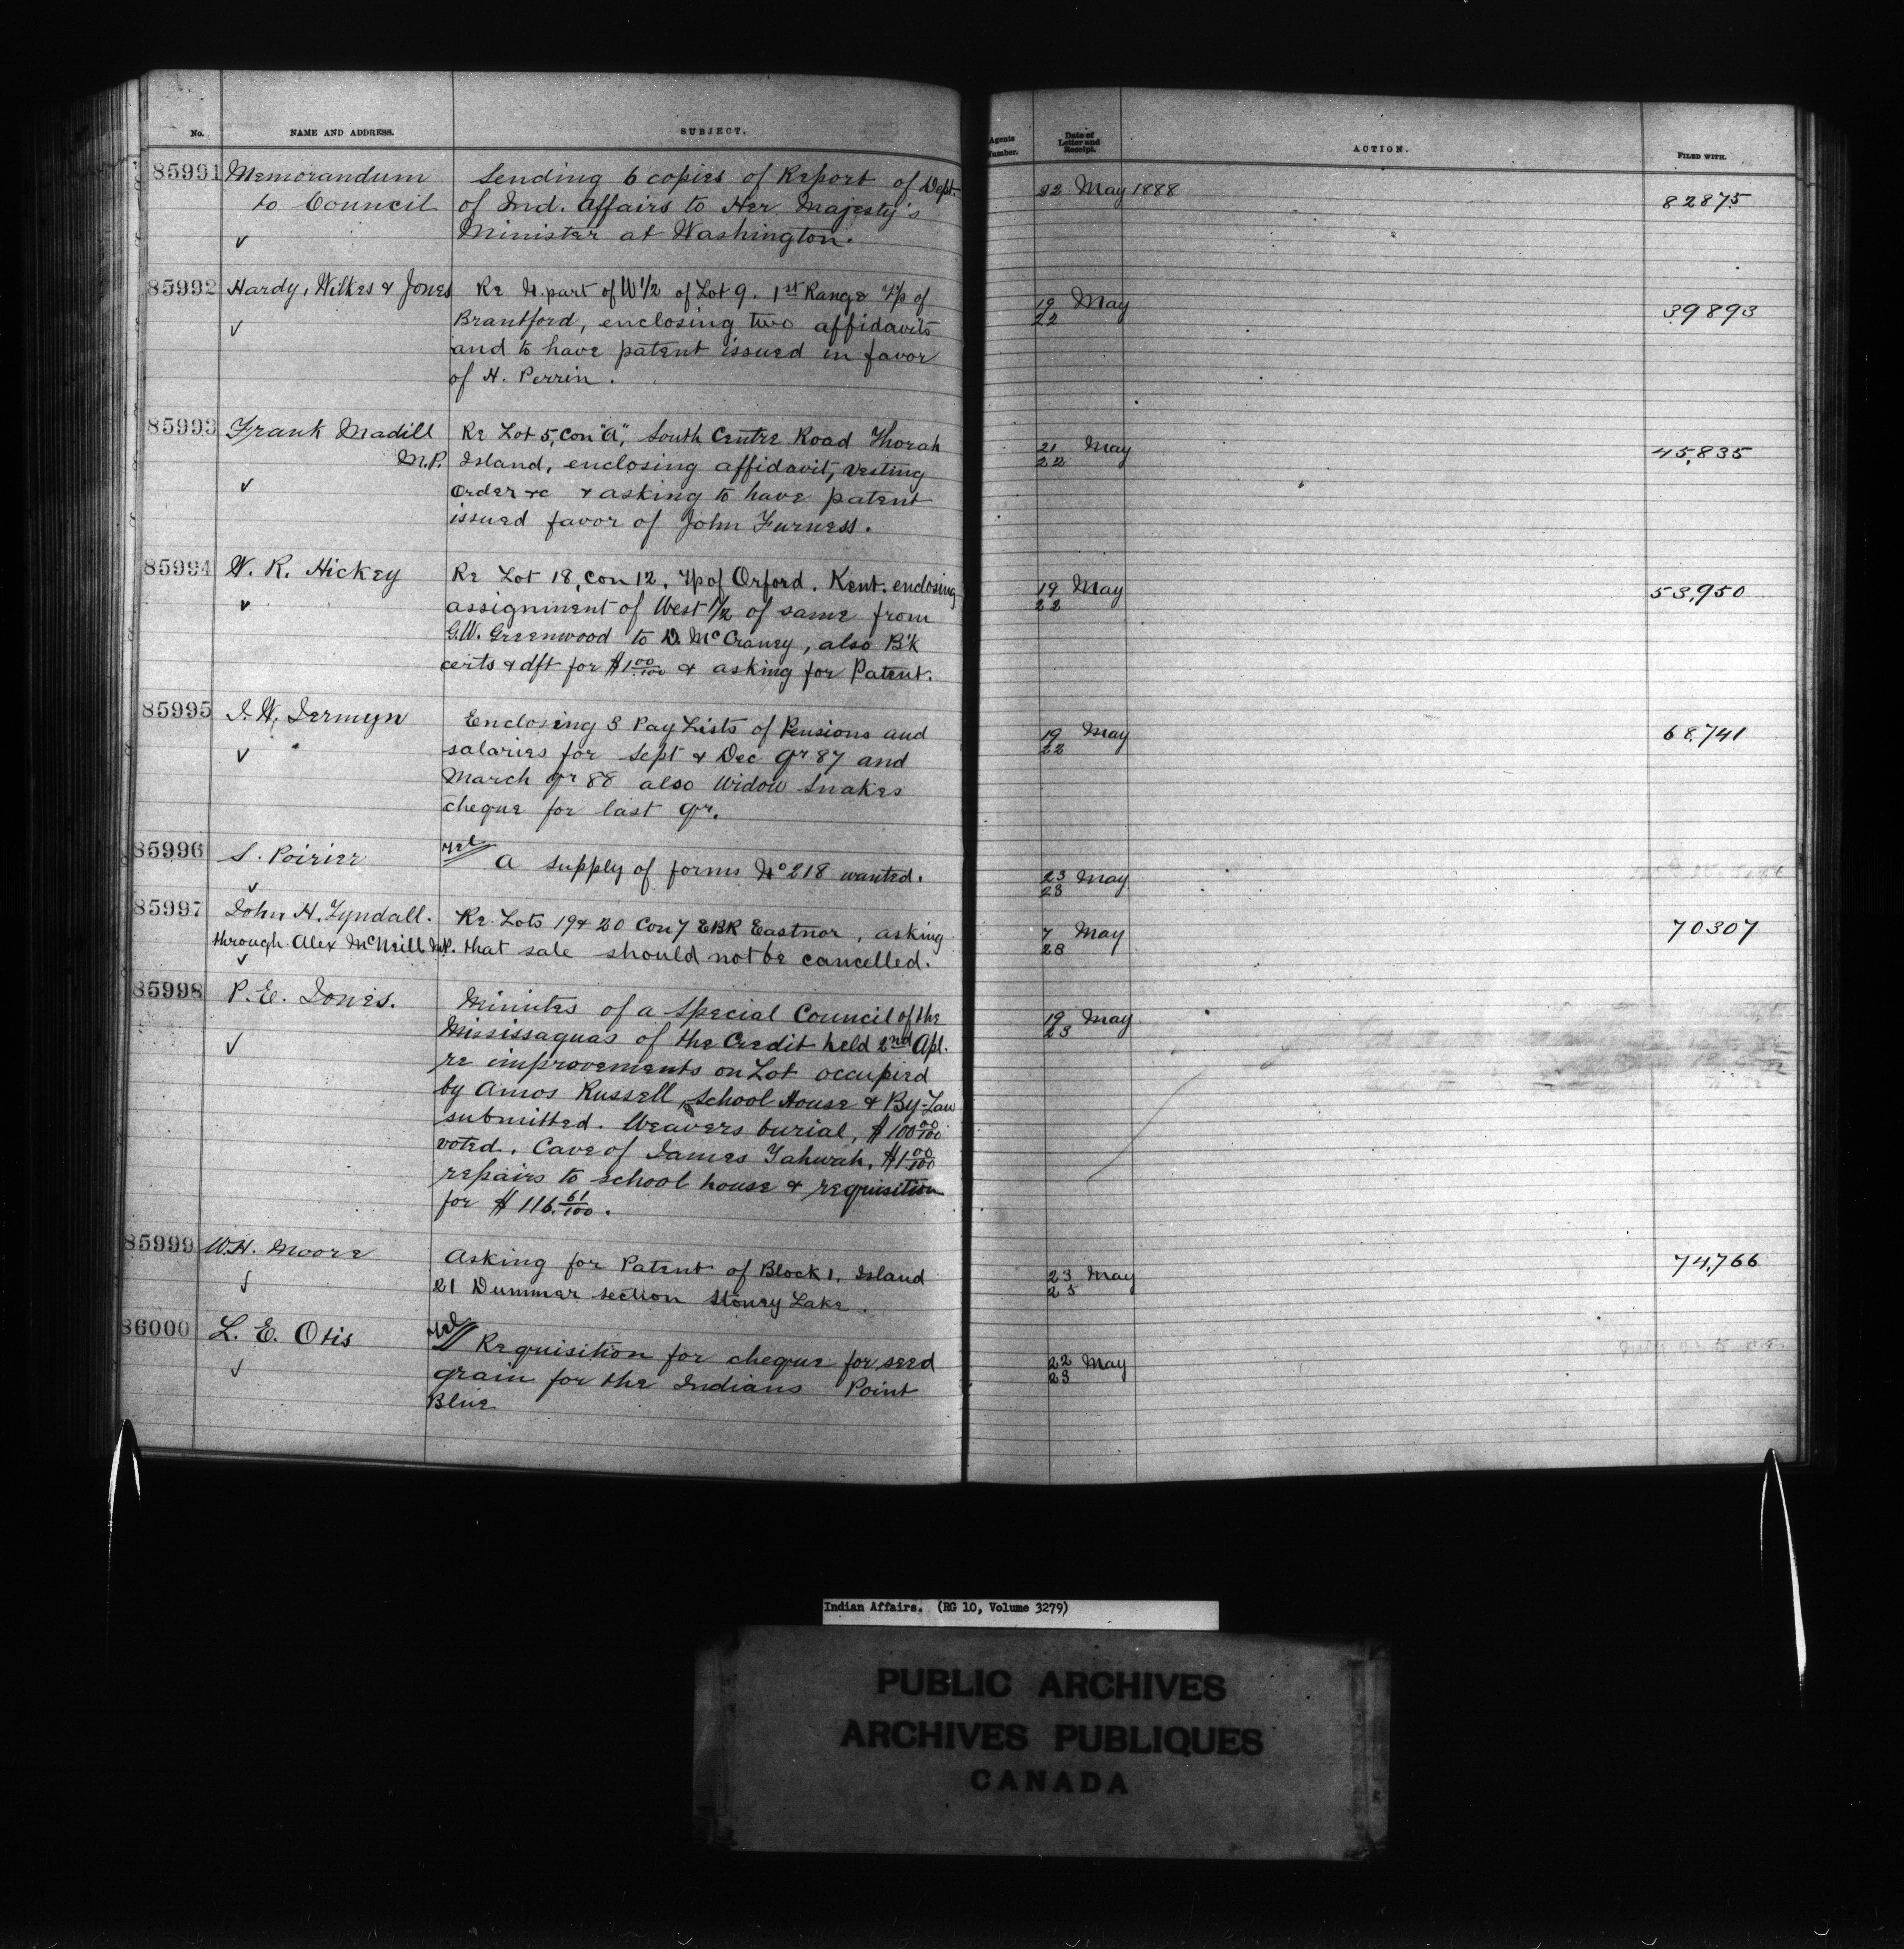 No. NAME AND ADDRESS. SUBJECT. Agents Number. Date of Letter and Receipt. ACTION. FILED WITH.
85991 Memorandum Sending 6 copies of Report of Dept. 22 May 1888 82875
to Council of Ind. Affairs to Her Majesty's
✓ Minister at Washington.
85992 Hardy, Wilkes & Jones Re N. part of W 1/2 of Lot 9. 1st Range Tp of 19 May 39893
✓ Brantford, enclosing two affidavits 22
and to have patent issued in favor
of H. Perrin.
85993 Frank Madill Re Lot 5, Con "A", South Centre Road Thorah 21 May 45,835
M.P. Island, enclosing affidavit, vesting 22
✓ Order &c & asking to have patent
issued favor of John Furness.
85994 W. R. Hickey Re Lot 18, Con 12. Tp of Orford. Kent. enclosing 19 May 53,950
✓ assignment of West 1/2 of same from 22
G.W. Greenwood to D. McCraney, also B'k
certs & dft for $1 00/100 & asking for Patent.
85995 J. W. Jermyn Enclosing 3 Pay Lists of Pensions and 19 May 68,741
✓ salaries for Sept & Dec qr 87 and 22
March qr 88 also Widow Snakes
cheque for last qr.
85996 S. Poirier Tel
✓ A supply of forms No 218 wanted. 23 May
23
85997 John H. Tyndall. Re Lots 19 & 20 Con 7 EBR Eastnor, asking 7 May 70307
through Alex McNeill M.P. that sale should not be cancelled. 23
✓
85998 P. E. Jones. Minutes of a Special Council of the 19 May
✓ Mississaguas of the Credit held 2nd Apl. 23
re improvements on Lot occupied
by Amos Russell, School House & By-Law
submitted. Weavers burial, $100 00/100
voted. Cave of James Tahwah, $1 00/100
repairs to school house & requisition
for $116. 61/100.
85999 W.H. Moore Asking for Patent of Block 1, Island 23 May 74,766
✓ 21 Dummer section Stoney Lake. 25
86000 L. E. Otis Tel
✓ Requisition for cheque for seed 22 May
grain for the Indians Point 23
Blue
Indian Affairs. (RG 10, Volume 3279)
PUBLIC ARCHIVES
ARCHIVES PUBLIQUES
CANADA